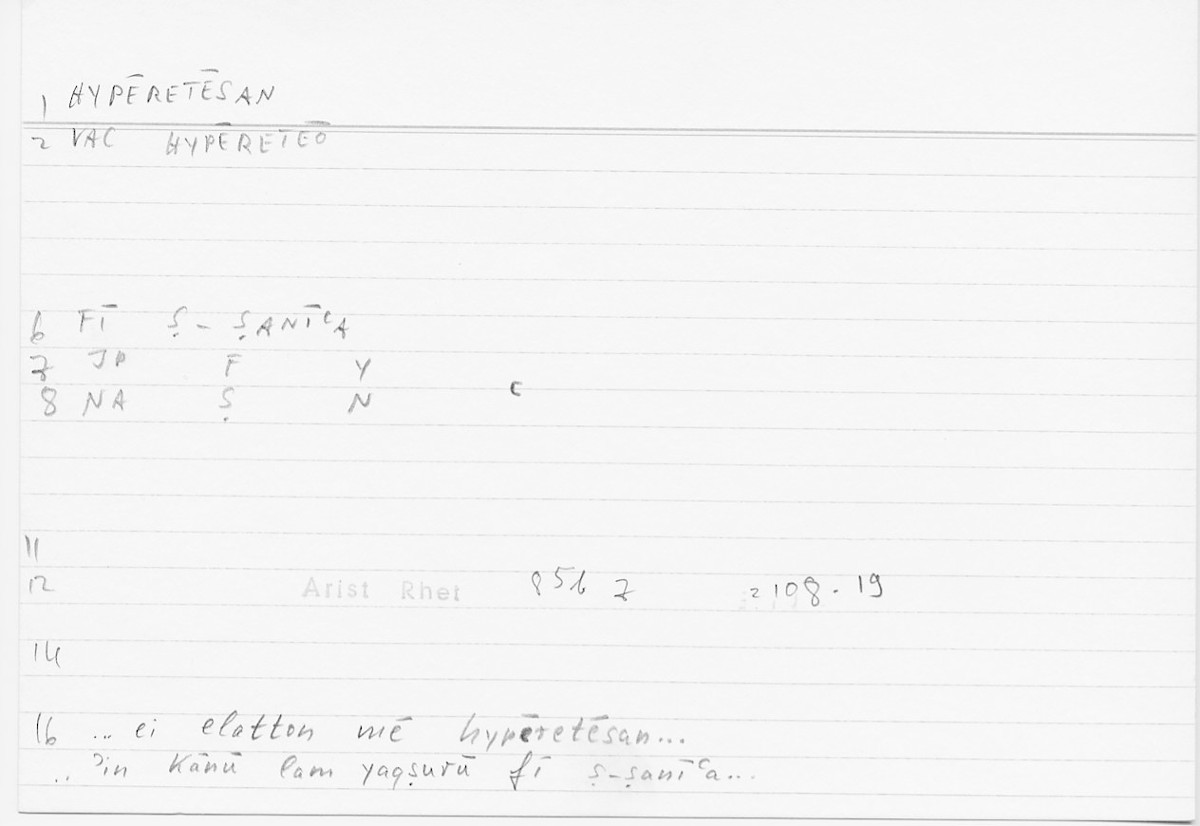 1 HYPĒRETĒSAN
2 VAC HYPĒRETEŌ
6 FĪ Ṣ-ṢANĪʿA
7 JP F Y
8 NA Ṣ N C
11
12 Arist Rhet 85b 7 2108.19
14
16 ... ei elatton mē hypēretēsan...
.. ʾin kānū lam yaqṣurū fī ṣ-ṣanīʿa...